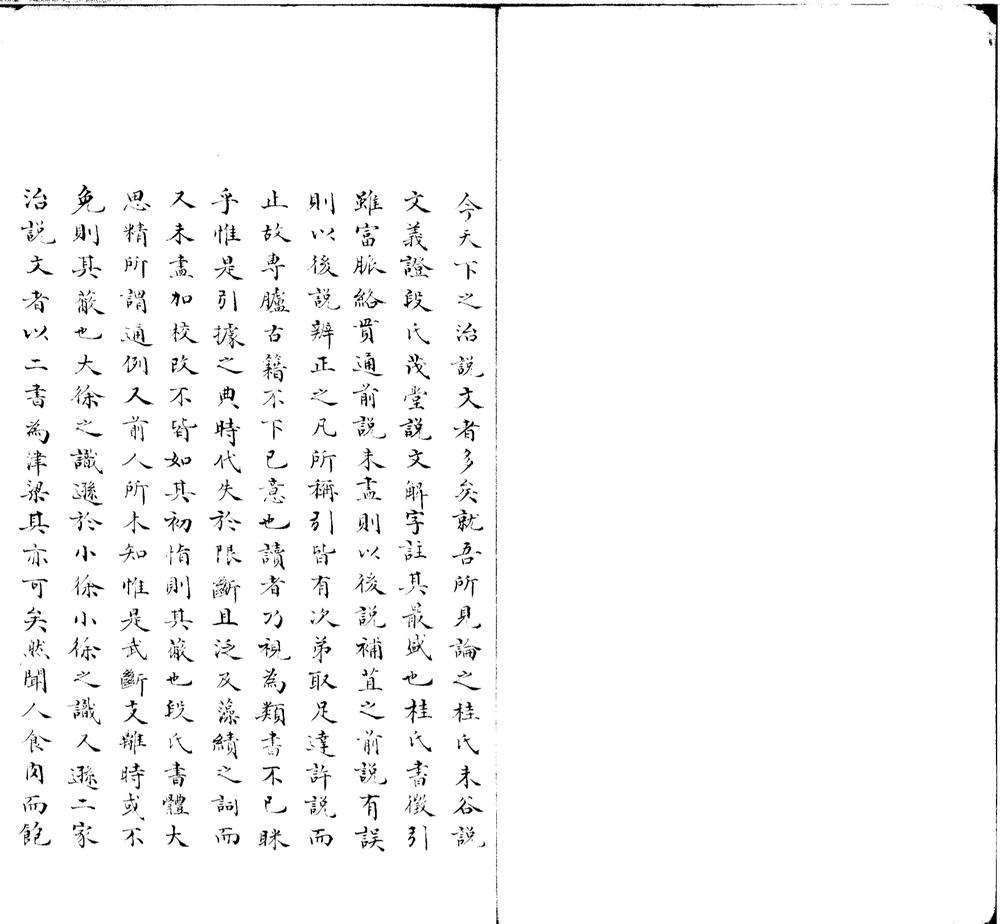 今天下之治説文者多矣就吾所見論之桂氏未谷説
文義證段氏茂堂説文解字註其最盛也桂氏書徵引
雖富脈絡貫通前説未盡則以後説補苴之前説有誤
則以後説辨正之凡所稱引皆有次第取足達許説而
止故専臚古籍不下已意也讀者乃視為類書不已眯
乎惟是引據之典時代失於限斷且泛及藻繢之詞而
又未盡加校改不皆如其初恉則其蔽也段氏書體大
思精所謂通例又前人所未知惟是武斷支離時或不
免則其蔽也大徐之識遜於小徐小徐之識又遜二家
治説文者以二書為津梁其亦可矣然聞人食肉而飽